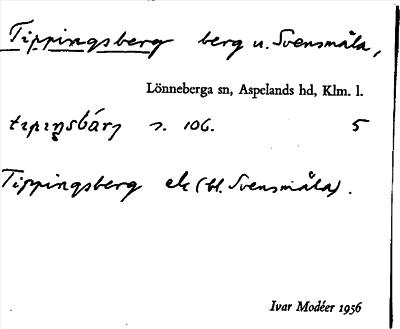 Tippingsberg berg u. Svensmåla,
Lönneberga sn, Aspelands hd, Klm. l.
s. 106. 5
Tippingsberg ek (bl. Svensmåla).
Ivar Modéer 1956